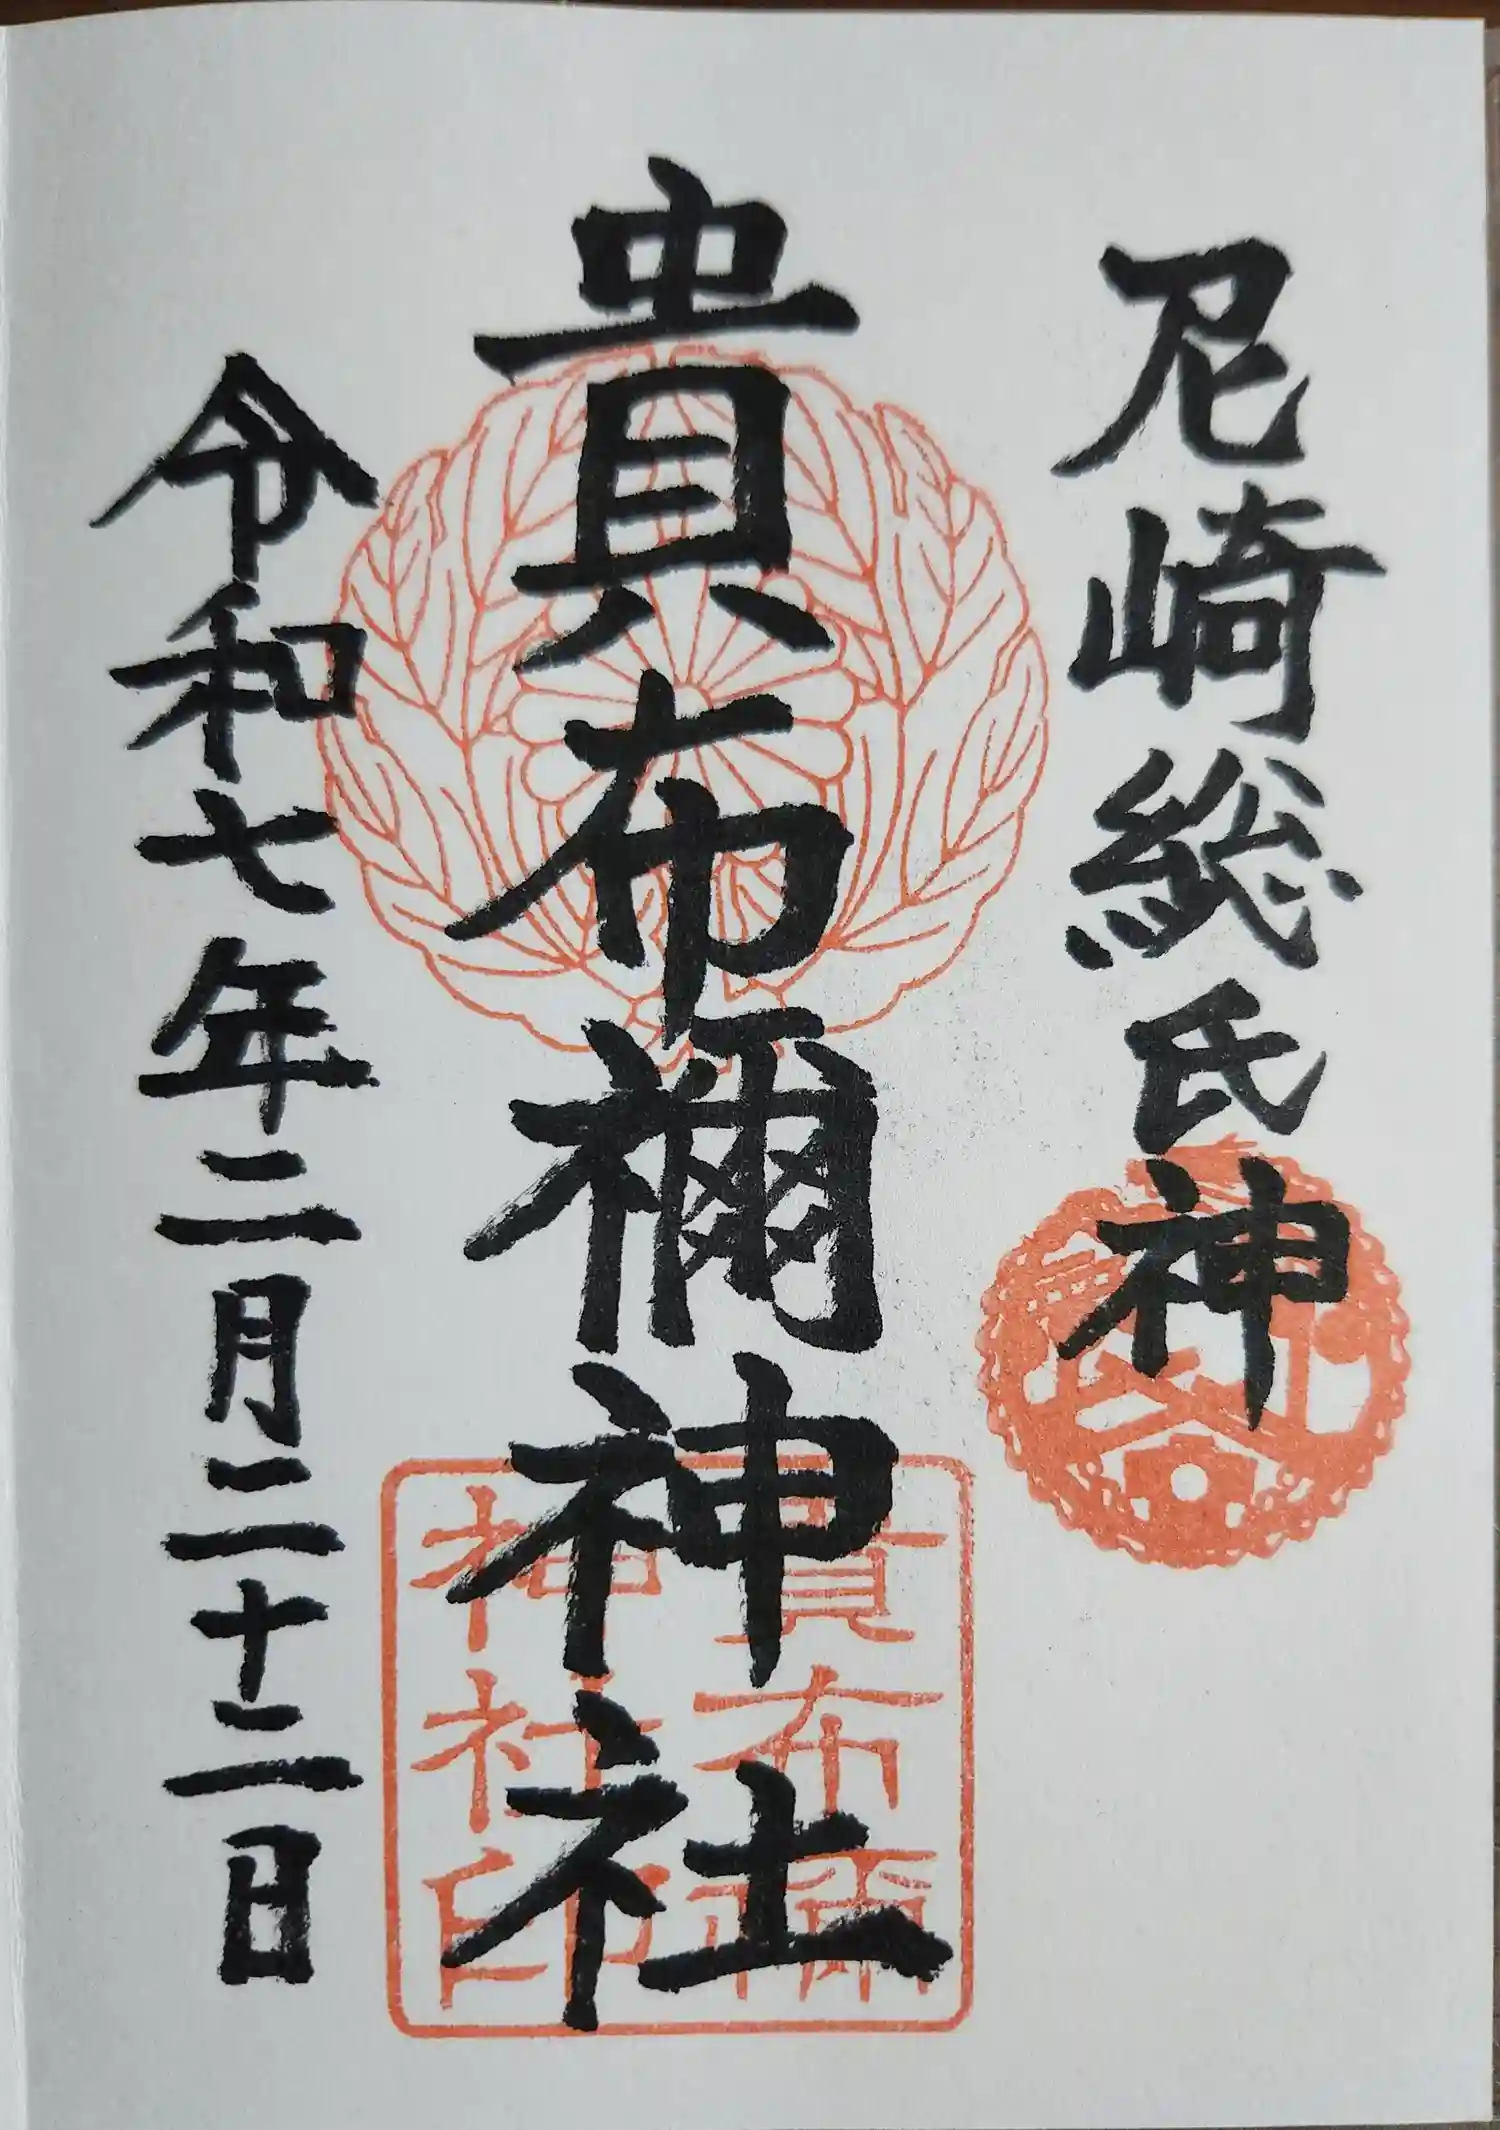 尼崎総氏神
貴布禰神社
令和七年二月二十二日
貴布禰
神社印